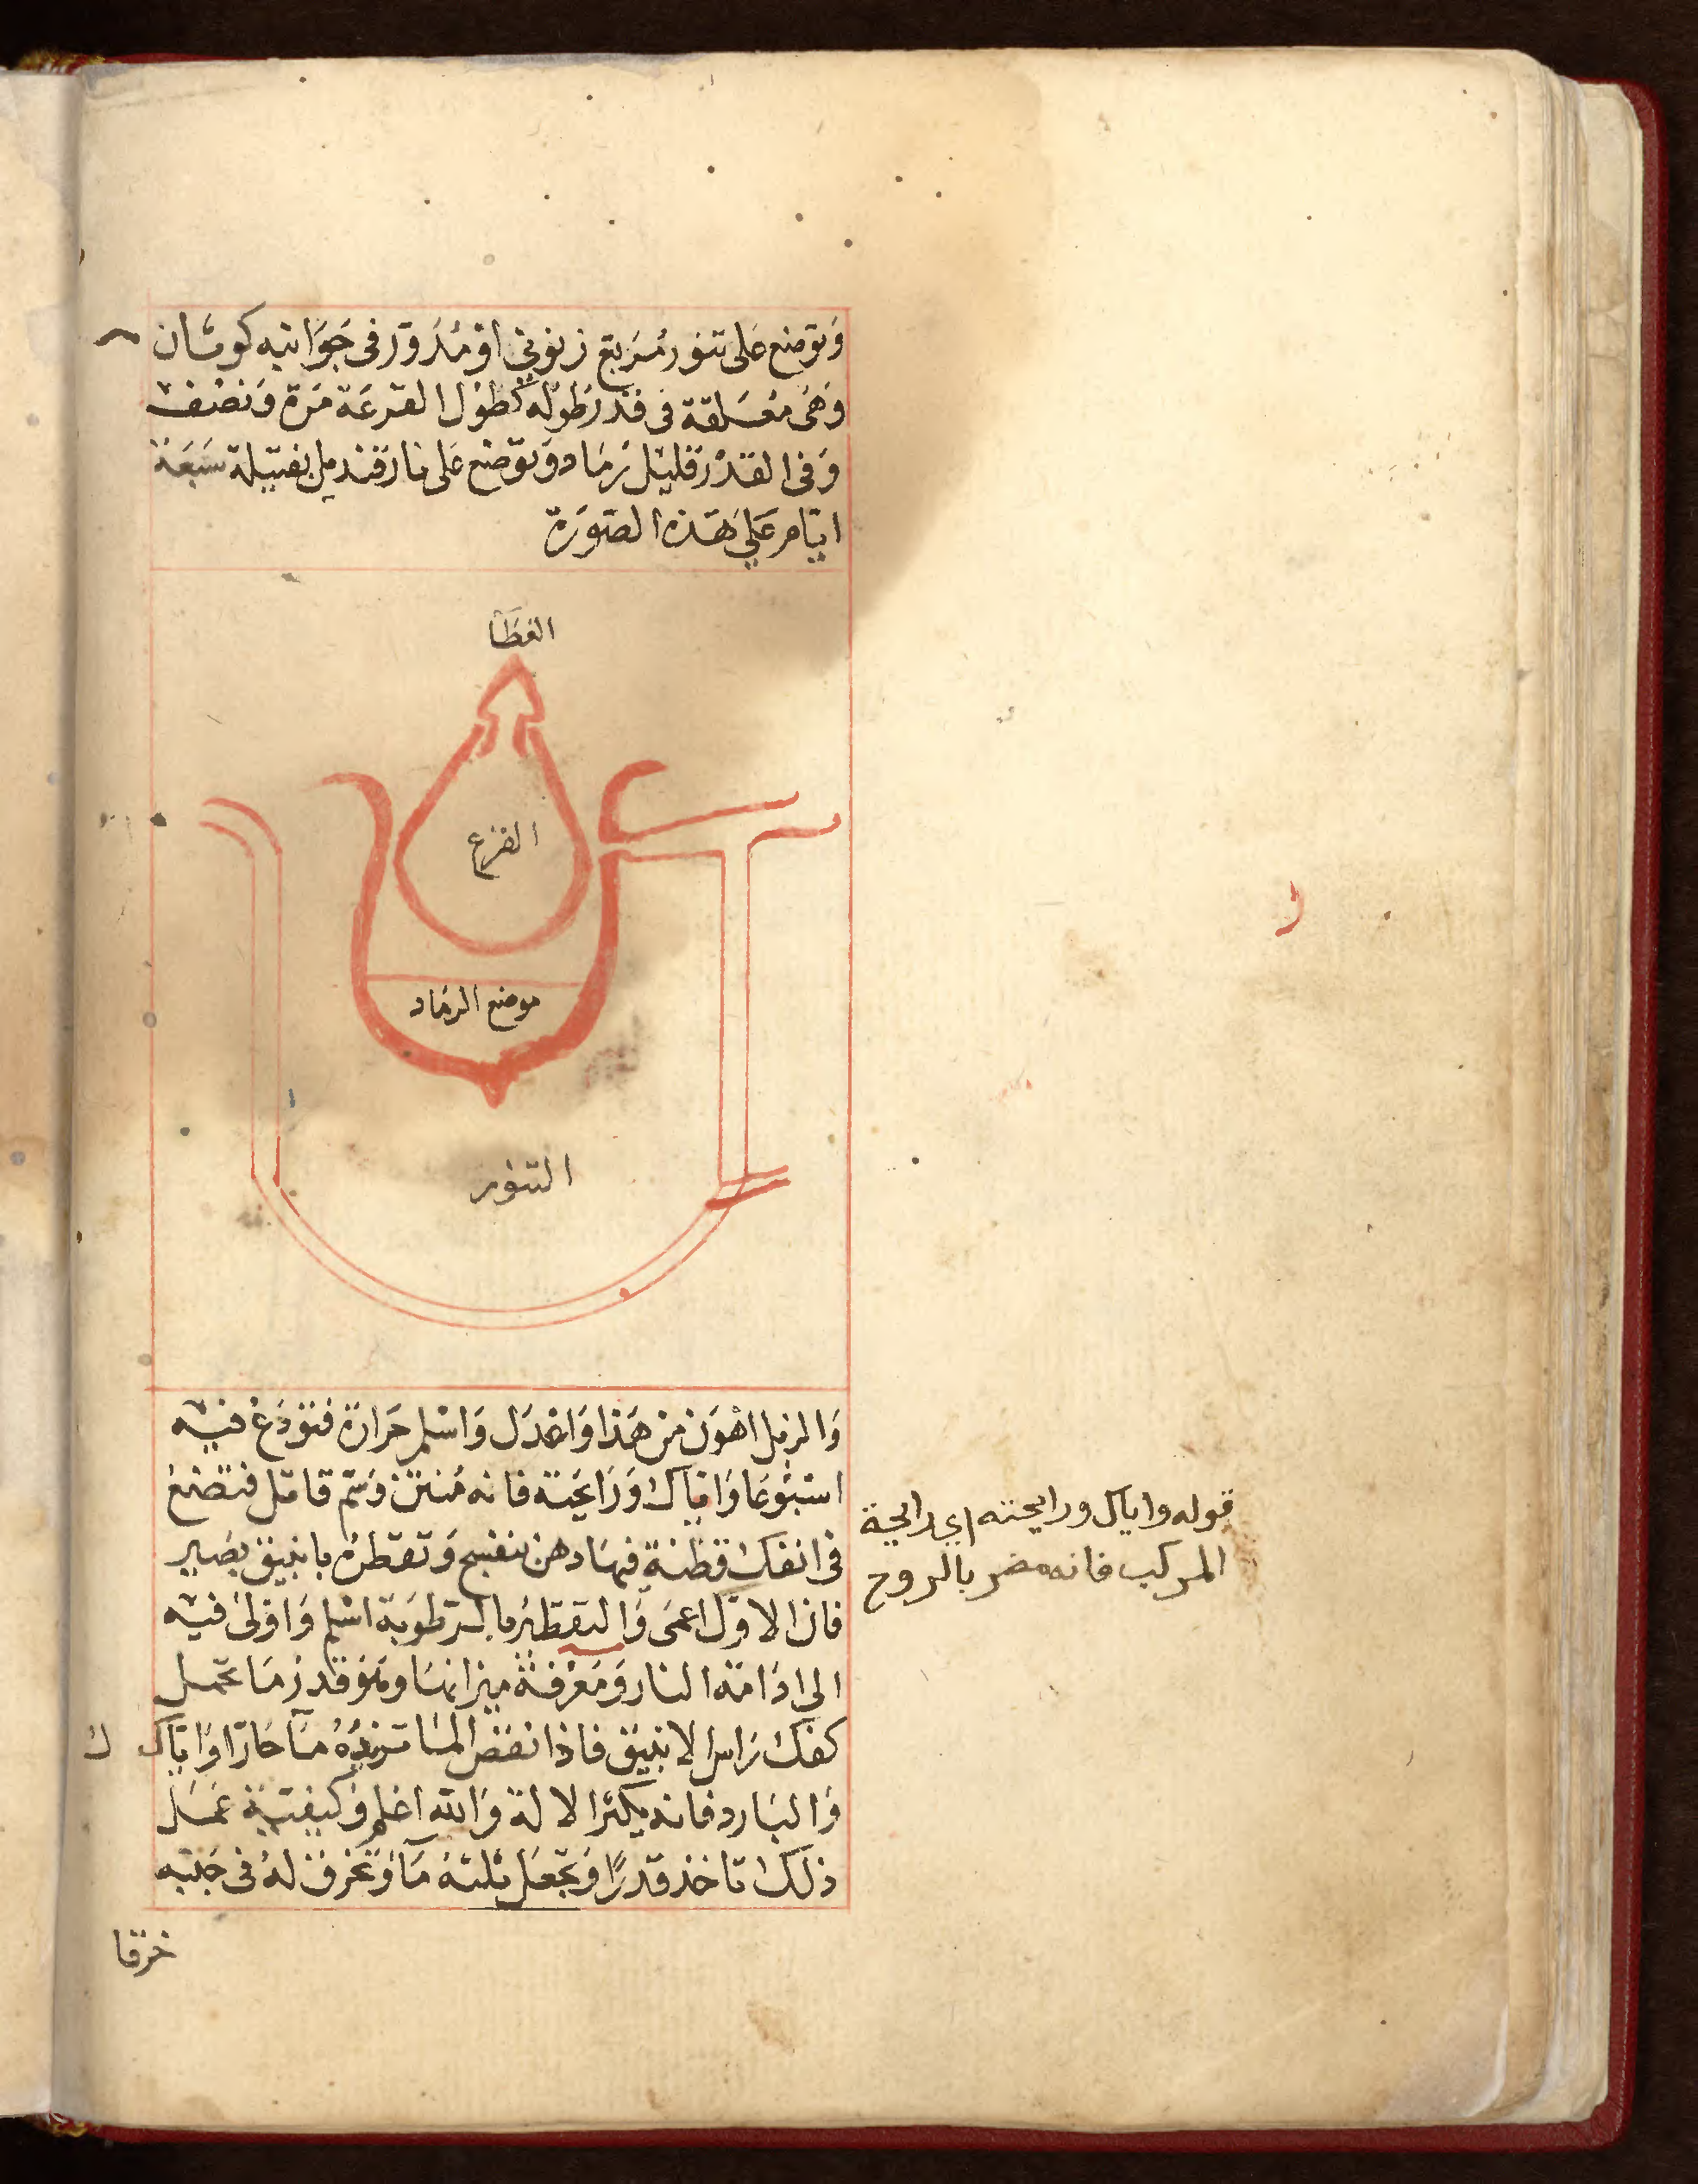 وَتوَضع عَلى تنور مُرَبّع زنوني او مُدَوّر فى جَوَانبه كوّتان
وَهىَ مُعَلقة فى قدر طولهَا كطوْل القرعَة مَرة وَنصْف
وَفى القدْر قليْل رمَاد وَتوَضع عَلى نار قنديل بفتيلة سَبعَة
ايّام عَلى هَذه الصّورَة
الغطَآ
القرع
موضع الرمَاد
التنور
وَالزبل اهْوَن منْ هَذا وَاعْدَل وَاسْلم حَرَارَة فتودَعْ فيْه
اسْبُوعًا وَايّاك وَرَايحَته فانه مُنتن وَسَم قاتل فتضع
فى انفك قطنة فيهَا دهن بنفسج وَتقطرهُ بانبيق بصَير
فان الاوّل اعمَى وَالتقطير بالرطوبَة اسْلم وَاوْلى فيْه
الى ادَامَة النار وَمَعْرفة ميزانهَا وَهُو قدر مَا تحمل
كفك رَاس الانبيق فاذا نقض المَا تزيدُهُ مَآ حَارًا وَايّاك
وَالبَارد فانه يكسر الالة وَالله اعْلم وَكيْفيّة عَمَل
ذلك تاخذ قدرًا وَتجعَل ثلثهُ مَآ وَتخرق لهُ فى جَنبه
خرقا
قوله واياك ورايحته اى رايحة
المركب فانه مضر بالروح